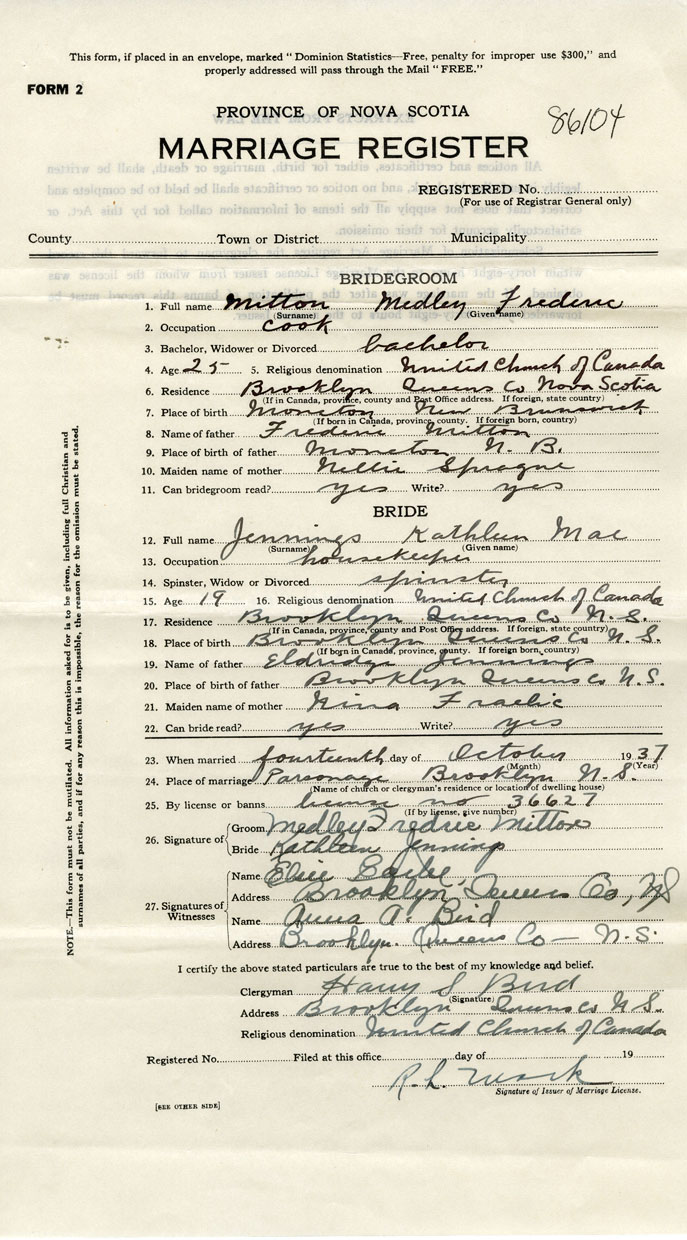 This form, if placed in an envelope, marked "Dominion Statistics—Free, penalty for improper use $300," and
properly addressed will pass through the Mail "FREE."
FORM 2
PROVINCE OF NOVA SCOTIA
86104
MARRIAGE REGISTER
REGISTERED No.
(For use of Registrar General only)
County Town or District Municipality
BRIDEGROOM
1. Full name Mitton Medley Frederic
(Surname) (Given name)
2. Occupation cook
3. Bachelor, Widower or Divorced bachelor
4. Age 25 5. Religious denomination United Church of Canada
6. Residence Brooklyn Queens Co Nova Scotia
(If in Canada, province, county and Post Office address. If foreign, state country)
7. Place of birth Moncton New Brunswick
(If born in Canada, province, county. If foreign born, country)
8. Name of father Frederic Mitton
9. Place of birth of father Moncton N. B.
10. Maiden name of mother Nellie Sprague
11. Can bridegroom read? yes Write? yes
BRIDE
12. Full name Jennings Kathleen Mae
(Surname) (Given name)
13. Occupation housekeeper
14. Spinster, Widow or Divorced spinster
15. Age 19 16. Religious denomination United Church of Canada
17. Residence Brooklyn Queens Co N. S.
(If in Canada, province, county and Post Office address. If foreign, state country)
18. Place of birth Brooklyn Queens Co N. S.
(If born in Canada, province, county. If foreign born, country)
19. Name of father Eldridge Jennings
20. Place of birth of father Brooklyn Queens Co N.S.
21. Maiden name of mother Nina Fraelic
22. Can bride read? yes Write? yes
23. When married fourteenth day of October 1937
(Month) (Year)
24. Place of marriage Parsonage Brooklyn N. S.
(Name of church or clergyman's residence or location of dwelling house)
25. By license or banns license no 36627
(If by license, give number)
26. Signature of Groom Medley Fredric Mitton
Bride Kathleen Jennings
27. Signatures of Witnesses
Name Elsie
Address Brooklyn, Queens Co, NS
Name Anna A. Bird
Address Brooklyn. Queens Co — N.S.
I certify the above stated particulars are true to the best of my knowledge and belief.
Clergyman Harry S Bird
(Signature)
Address Brooklyn Queens Co N. S.
Religious denomination United Church of Canada
Registered No. Filed at this office day of 19
R. L.
Signature of Issuer of Marriage License.
[SEE OTHER SIDE]
NOTE.—This form must not be mutilated. All information asked for is to be given, including full Christian and
surnames of all parties, and if for any reason this is impossible, the reason for the omission must be stated.